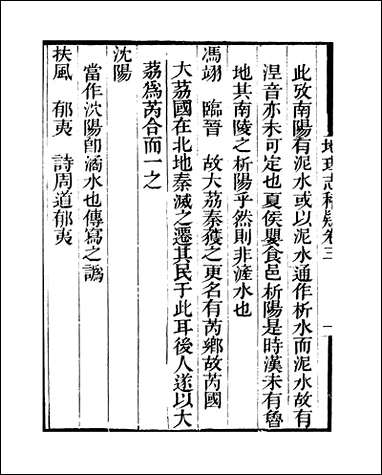 地理志稽疑卷三　一
此攷南陽有泥水或以泥水通作析水而泥水故有
涅音亦未可定也夏侯嬰食邑析陽是時漢未有魯
地其南陵之析陽乎然則非滍水也
馮翊　臨晉　故大荔秦獲之更名有芮鄉故芮國
大荔國在北地秦滅之遷其民于此耳後人遂以大
荔爲芮合而一之
沈陽
當作沈陽卽滴水也傳寫之譌
扶風　郁夷　詩周道郁夷